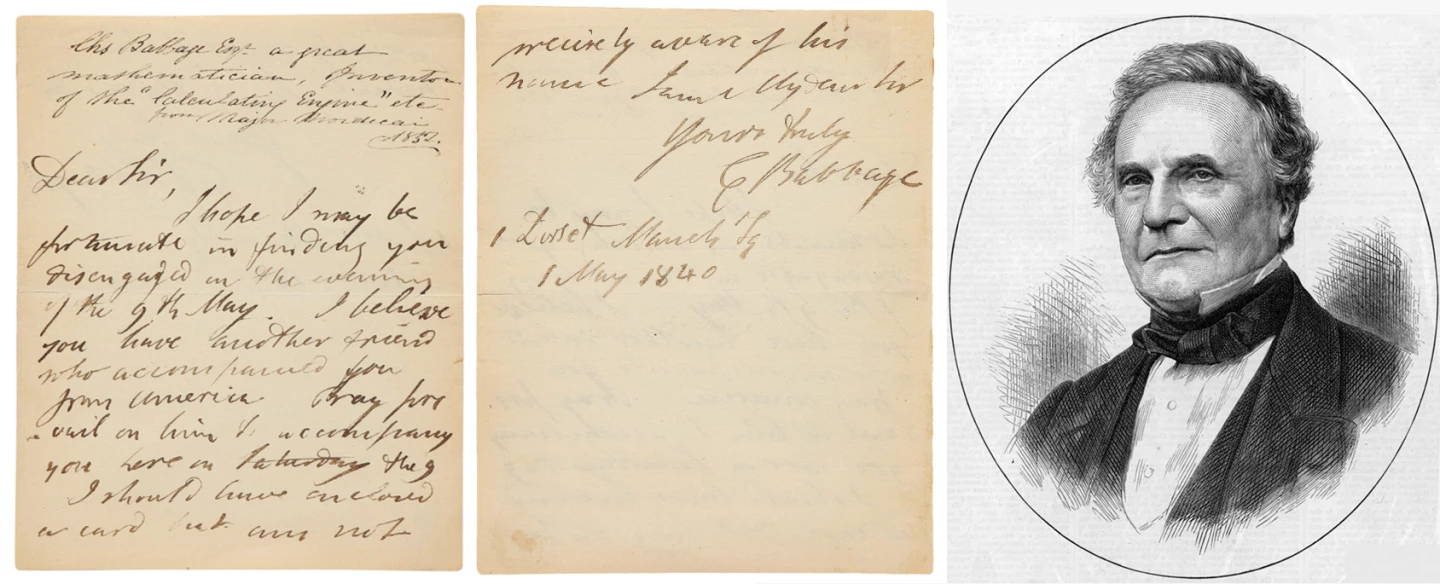 Chs Babbage Esqr. a great
mathematician, Inventor
of the "Calculating Engine" etc
from Major Mordecai
1852.
Dear Sir,
I hope I may be
fortunate in finding you
disengaged on the evening
of the 9th May. I believe
you have another friend
who accompanied you
from America Pray pre
-vail on him to accompany
you here on Saturday the 9
I should have enclosed
a card but am not
precisely aware of his
name I am My dear Sir
Yours truly
C Babbage
1 Dorset Manch Sq
1 May 1840